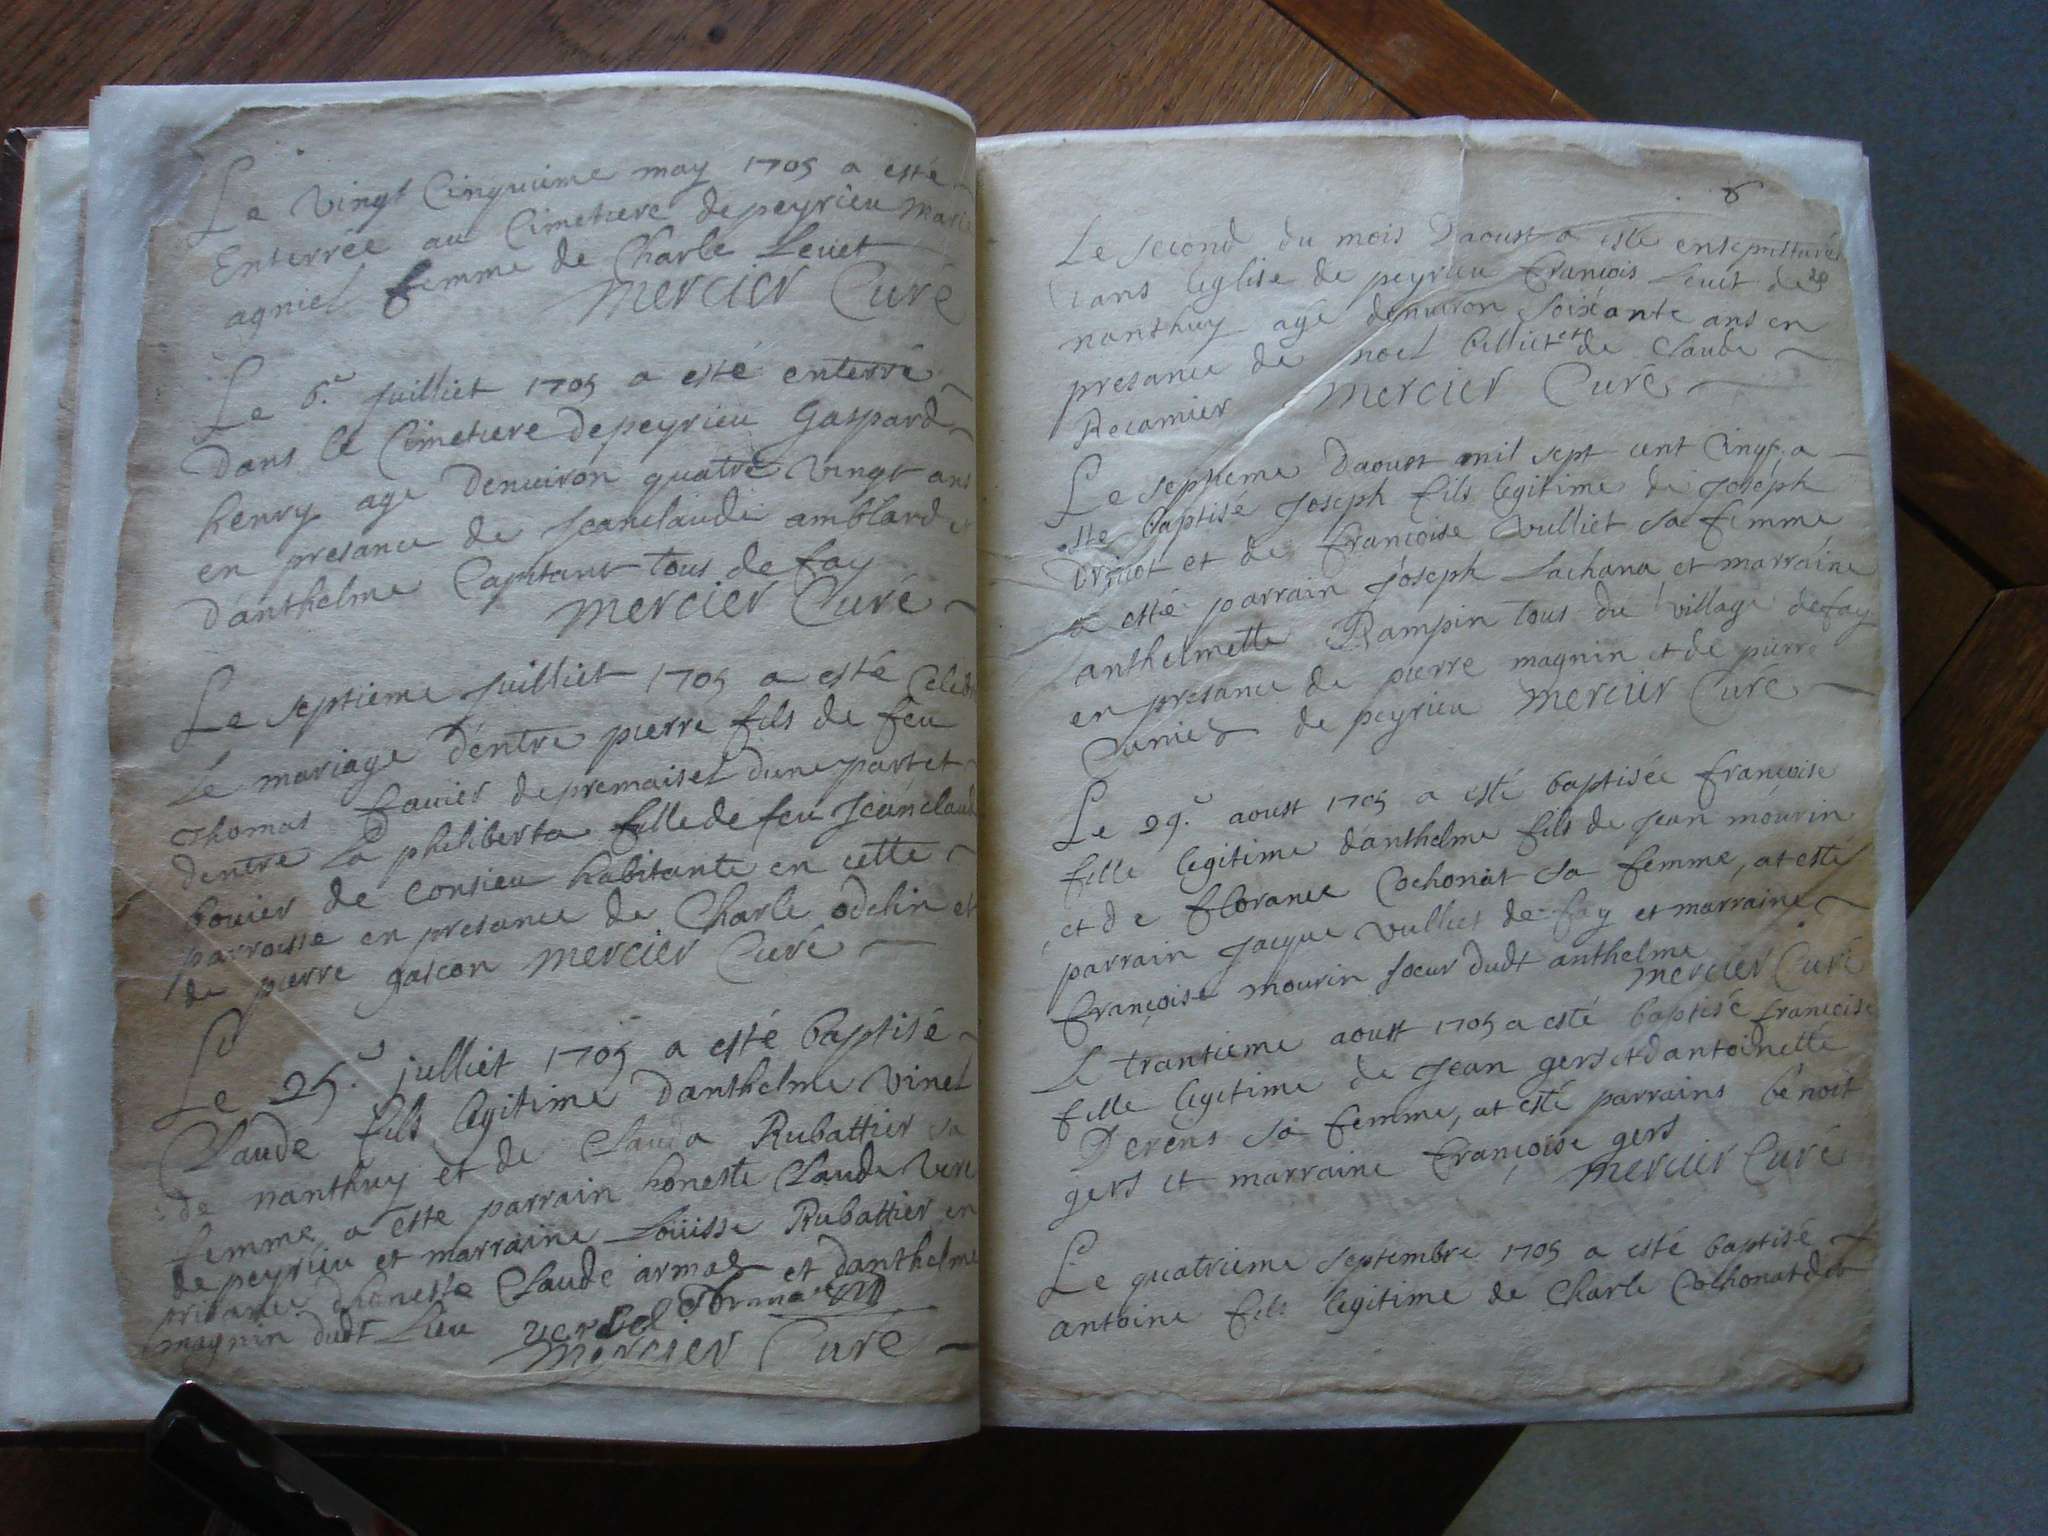 Le vingt Cinquieme may 1705 a esté
Enterrée au Cimetiere de peyrieu marie
agniel femme de Charle Levet
mercier Curé
Le 6.e Juilliet 1705 a esté enterré
dans le Cimetiere de peyrieu Gaspard
henry age denuiron quatre vingt ans
en presance de Jeanclaude amblard et
danthelme Capitant tous de fay
mercier Curé
Le septieme Juilliet 1705 a esté celebr
Le mariage dentre pierre fils de feu
Thomas fauier de premaisel dune part et
dentre La philiberta fille de feu Jeanclaude
bouier de consieu habitante en cette
parroisse en presance de Charle odelin et
de pierre gascon mercier Curé
Le 25.e julliet 1705 a esté baptisé
Claude fils legitime danthelme vinel
de nanthuy et de Clauda Rubattier sa
femme a este parrain honeste Claude
de peyrieu et marraine Louisse Rubattier en
presance dhoneste Claude armal et danthelme
magnin dudt Lieu
mercier Curé
8
Le second du mois daoust a esté ensepulturé
dans leglise de peyrieu francois Levet de
nanthuy agé denuiron soixante ans en
presance de noel billiet et de Claude
Recamier mercier Curé
Le septieme daoust mil sept cent cinq a
este baptisé Joseph fils legitime de Joseph
et de francoise vulliet sa femme
a esté parrain Joseph Lachana et marraine
anthelmette Rampin tous du village de fay
en presance de pierre magnin et de pierre
de peyrieu mercier Curé
Le 29.e aoust 1705 a esté baptisée francoise
fille legitime danthelme fils de Jean mourin
et de florance Cochonat sa femme, at esté
parrain Jacque vulliet de fay et marraine
francoise mourin soeur dudt anthelme
mercier Curé
Le trantieme aoust 1705 a esté baptisé francoise
fille legitime de Jean gers et dantoinette
Derens sa femme, at esté parrains benoit
gers et marraine francoise gers
mercier Curé
Le quatrieme septembre 1705 a esté baptisé
antoine fils legitime de Charle Cochonat dit